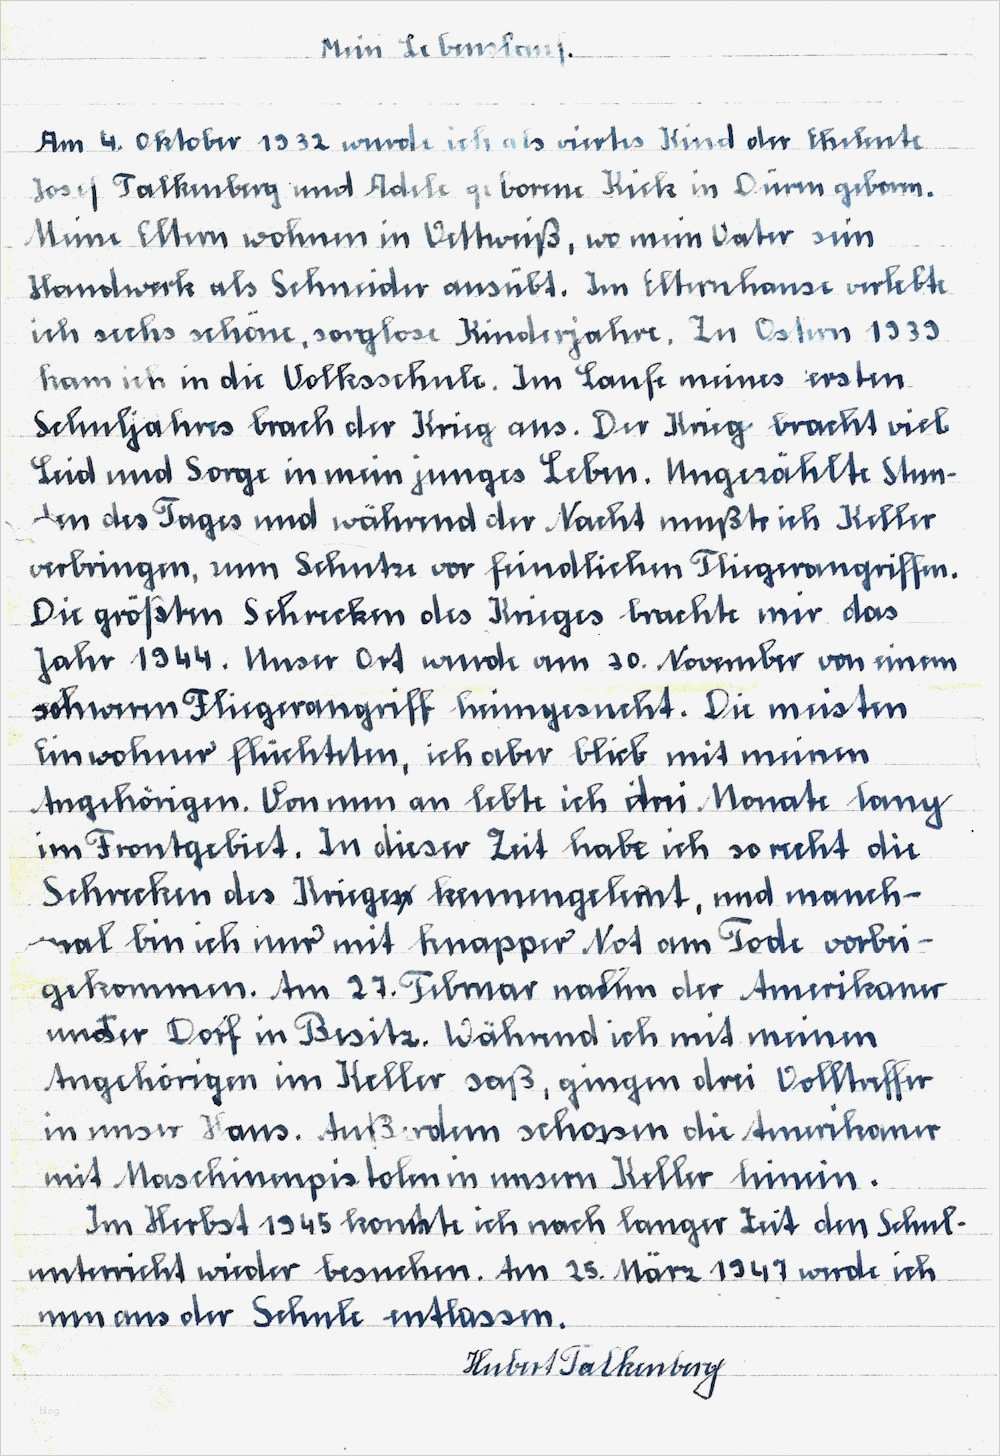 Mein Lebenslauf.
Am 4. Oktober 1932 wurde ich als viertes Kind der Eheleute
Josef Falkenberg und Adele geborene Kick in Düren geboren.
Meine Eltern wohnen in Vettweiß, wo mein Vater sein
Handwerk als Schneider ausübt. Im Elternhause verlebte
ich sechs schöne, sorglose Kinderjahre. Zu Ostern 1939
kam ich in die Volksschule. Im Laufe meines ersten
Schuljahres brach der Krieg aus. Der Krieg bracht viel
Leid und Sorge in mein junges Leben. Ungezählte Stun-
den des Tages und während der Nacht mußte ich Keller
verbringen, zum Schutze vor feindlichen Fliegerangriffen.
Die größten Schrecken des Krieges brachte mir das
Jahr 1944. Unser Ort wurde am 30. November von einem
schweren Fliegerangriff heimgesucht. Die meisten
Einwohner flüchteten, ich aber blieb mit meinen
Angehörigen. Von nun an lebte ich drei Monate lang
im Frontgebiet. In dieser Zeit habe ich so recht die
Schrecken des Krieges kennengelernt, und manch-
mal bin ich nur mit knapper Not am Tode vorbei-
gekommen. Am 27. Februar nahm der Amerikaner
unser Dorf in Besitz. Während ich mit meinen
Angehörigen im Keller saß, gingen drei Volltreffer
in unser Haus. Außerdem schossen die Amerikaner
mit Maschinenpistolen in unsern Keller hinein.
Im Herbst 1945 konnte ich nach langer Zeit den Schul-
unterricht wieder besuchen. Am 25. März 1947 werde ich
nun aus der Schule entlassen.
Hubert Falkenberg
blog